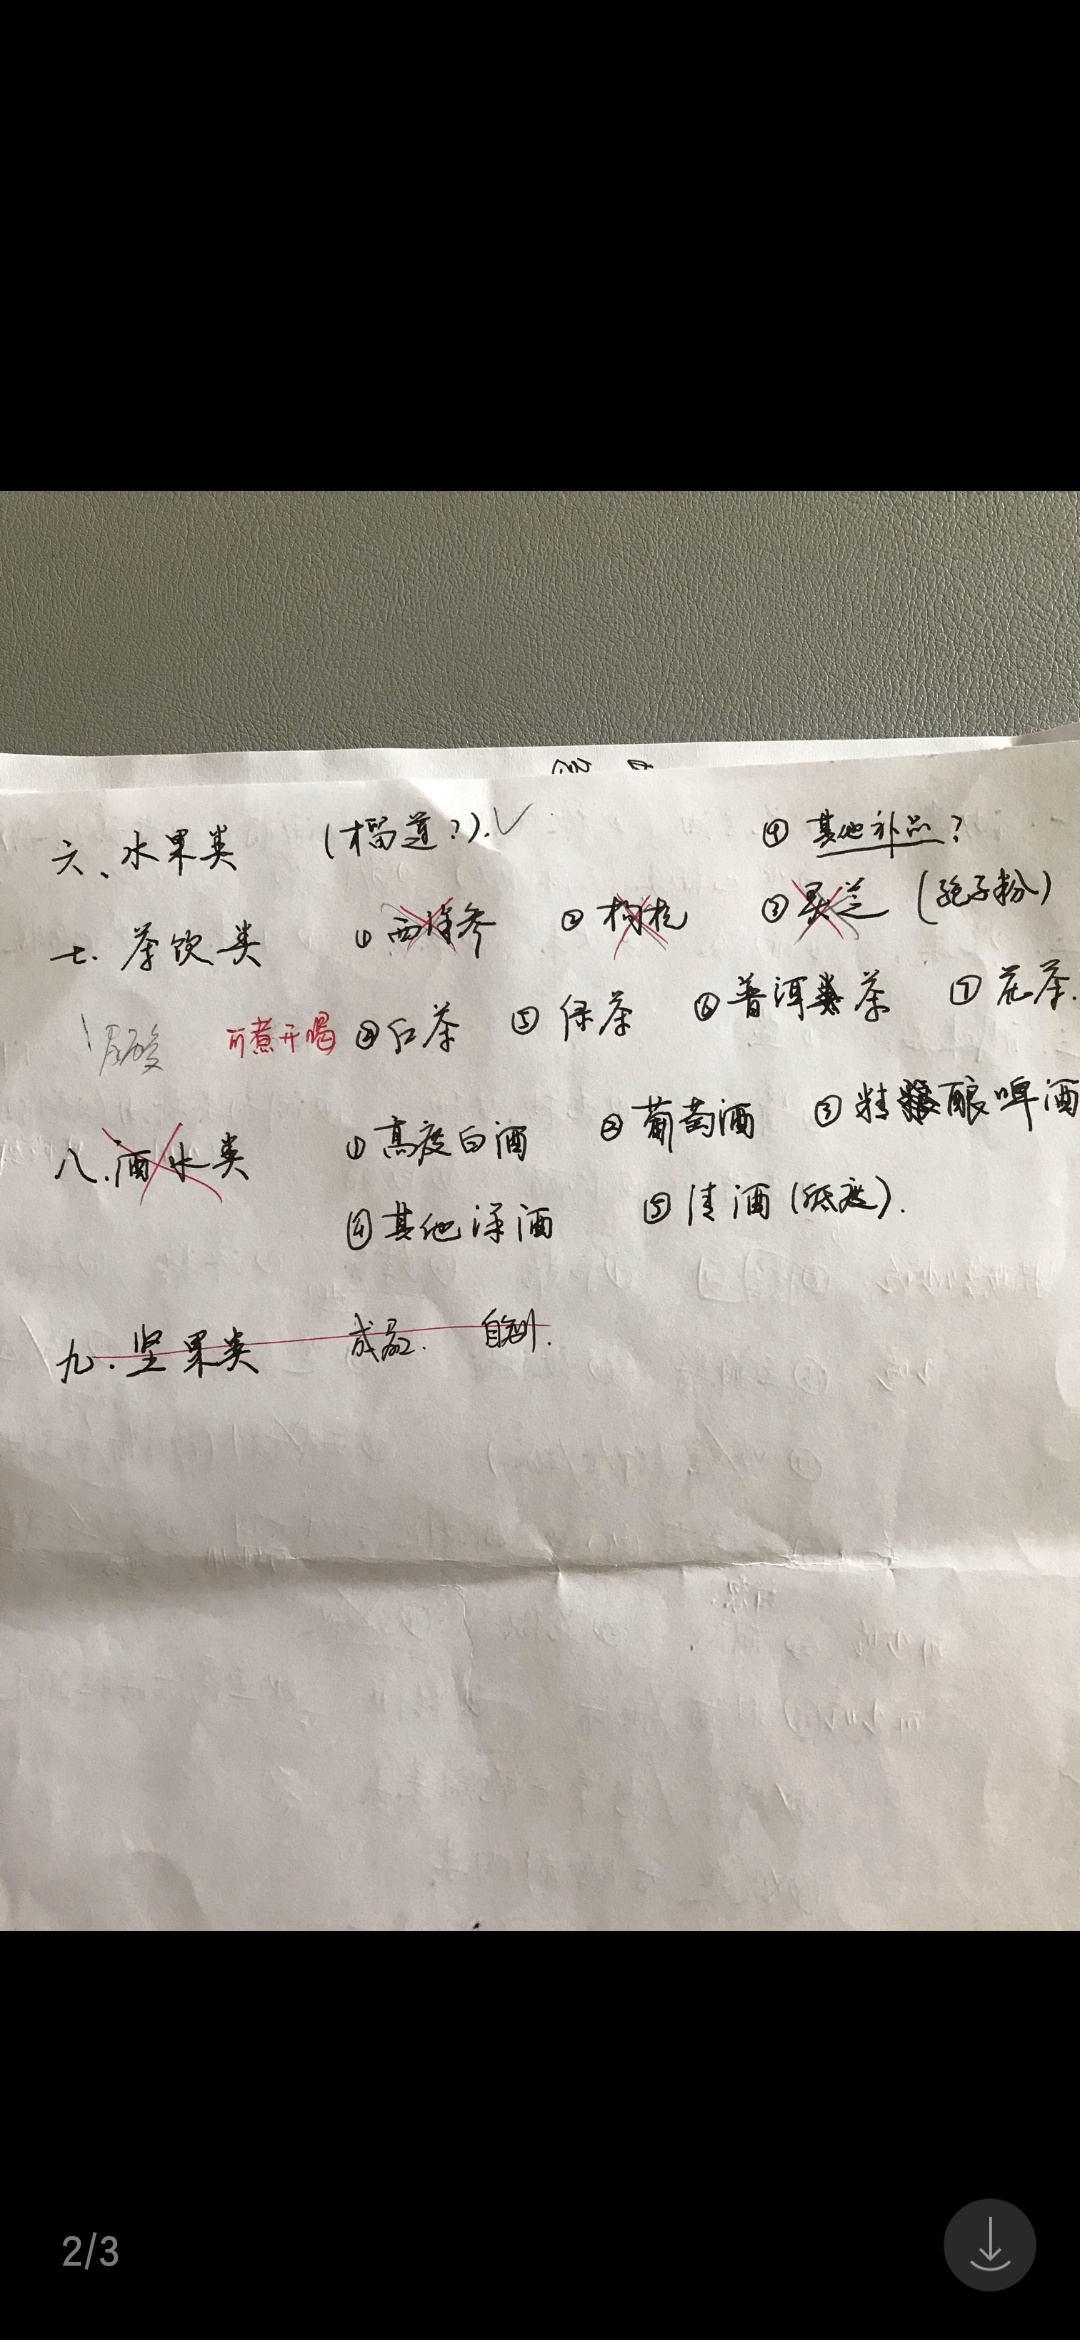 ④ 其他补品?
六、水果类 (榴莲?).✓
七. 茶饮类 ① 西洋参 ② 枸杞 ③ 灵芝 (孢子粉)
尿酸 可煮开喝 ④ 红茶 ⑤ 绿茶 ⑥ 普洱类茶 ⑦ 花茶.
八.酒水类 ① 高度白酒 ② 葡萄酒 ③ 精酿啤酒
④ 其他洋酒 ⑤ 清酒 (低度).
九.坚果类 成品. 自制.
2/3